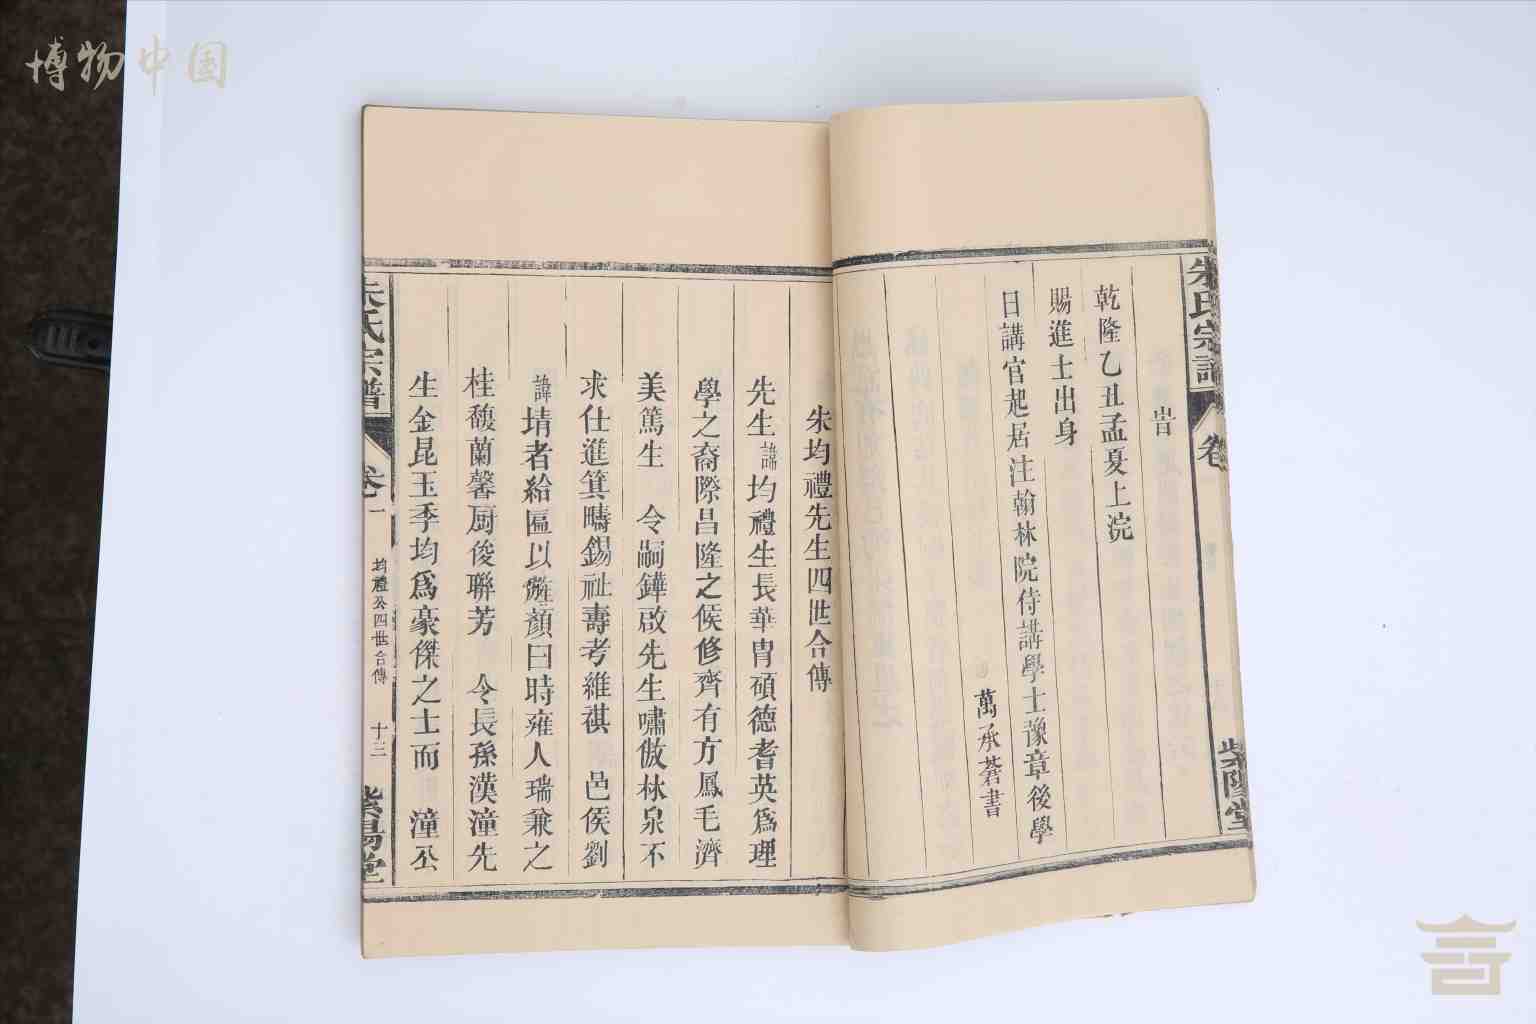 博物中国
朱氏宗譜
卷
紫陽堂
旹
乾隆乙丑孟夏上浣
賜進士出身
日講官起居注翰林院侍講學士豫章後學
萬承蒼書
朱均禮先生四世合傳
先生諱均禮生長華胄碩德耆英爲理
學之裔際昌隆之候修齊有方鳳毛濟
美篤生 令嗣鏵啟先生嘯傲林泉不
求仕進箕疇錫祉壽考維祺 邑侯劉
諱堉者給匾以旌顏曰時雍人瑞兼之
桂馥蘭馨厨俊聯芳 令長孫漢潼先
生金昆玉季均爲豪傑之士而 潼公
朱氏宗譜
卷一
均禮公四世合傳
十三
紫陽堂